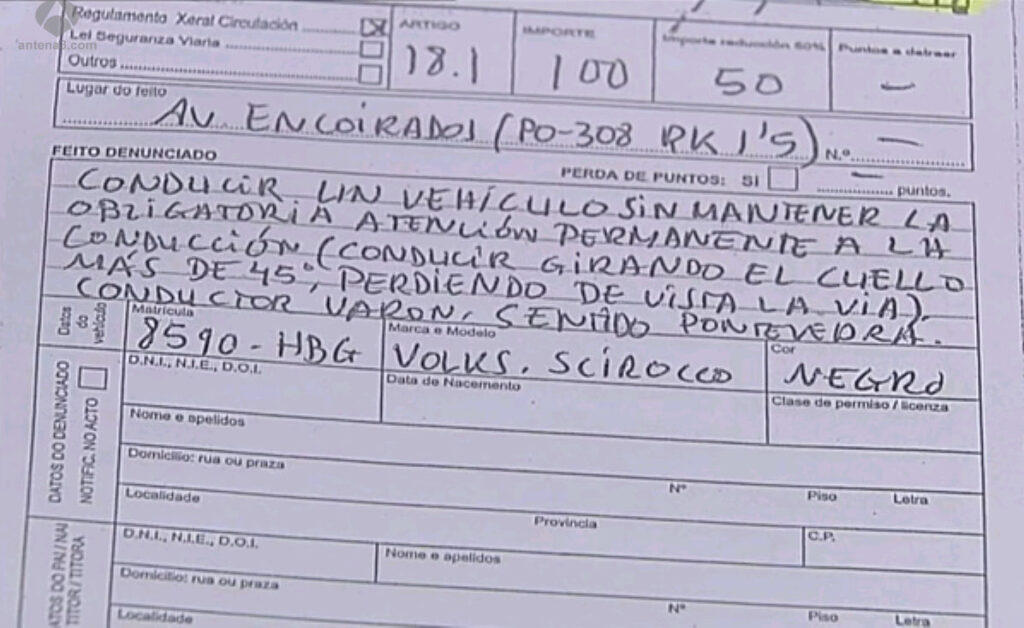 antena3.com
Regulamento Xeral Circulación
Lei Seguranza Viaria
Outros
ARTIGO
18.1
IMPORTE
100
Importe reducción 50%
50
Puntos a detraer
–
Lugar do feito
AV. ENCOIRADOS (PO-308 PK 1'5)
N.º –
FEITO DENUNCIADO
PERDA DE PUNTOS: SI – puntos.
CONDUCIR UN VEHÍCULO SIN MANTENER LA
OBLIGATORIA ATENCIÓN PERMANENTE A LA
CONDUCCIÓN (CONDUCIR GIRANDO EL CUELLO
MÁS DE 45º, PERDIENDO DE VISTA LA VIA).
CONDUCTOR VARON, SENTIDO PONTEVEDRA.
Datos do vehículo
Matrícula
8590-HBG
Marca e Modelo
VOLKS. SCIROCCO
Cor
NEGRO
DATOS DO DENUNCIADO
NOTIFIC. NO ACTO
D.N.I., N.I.E., D.O.I.
Data de Nacemento
Clase de permiso / licenza
Nome e apelidos
Domicilio: rua ou praza
Nº
Piso
Letra
Localidade
Provincia
C.P.
DATOS DO PAI / NAI
TITOR / TITORA
D.N.I., N.I.E., D.O.I.
Nome e apelidos
Domicilio: rua ou praza
Nº
Piso
Letra
Localidade